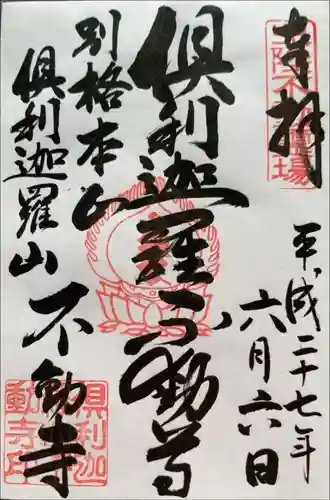 奉拝
平成二十七年
六月六日
倶利迦羅不動尊
別格本山
倶利迦羅山
不動寺
倶利迦
羅山不
動寺印